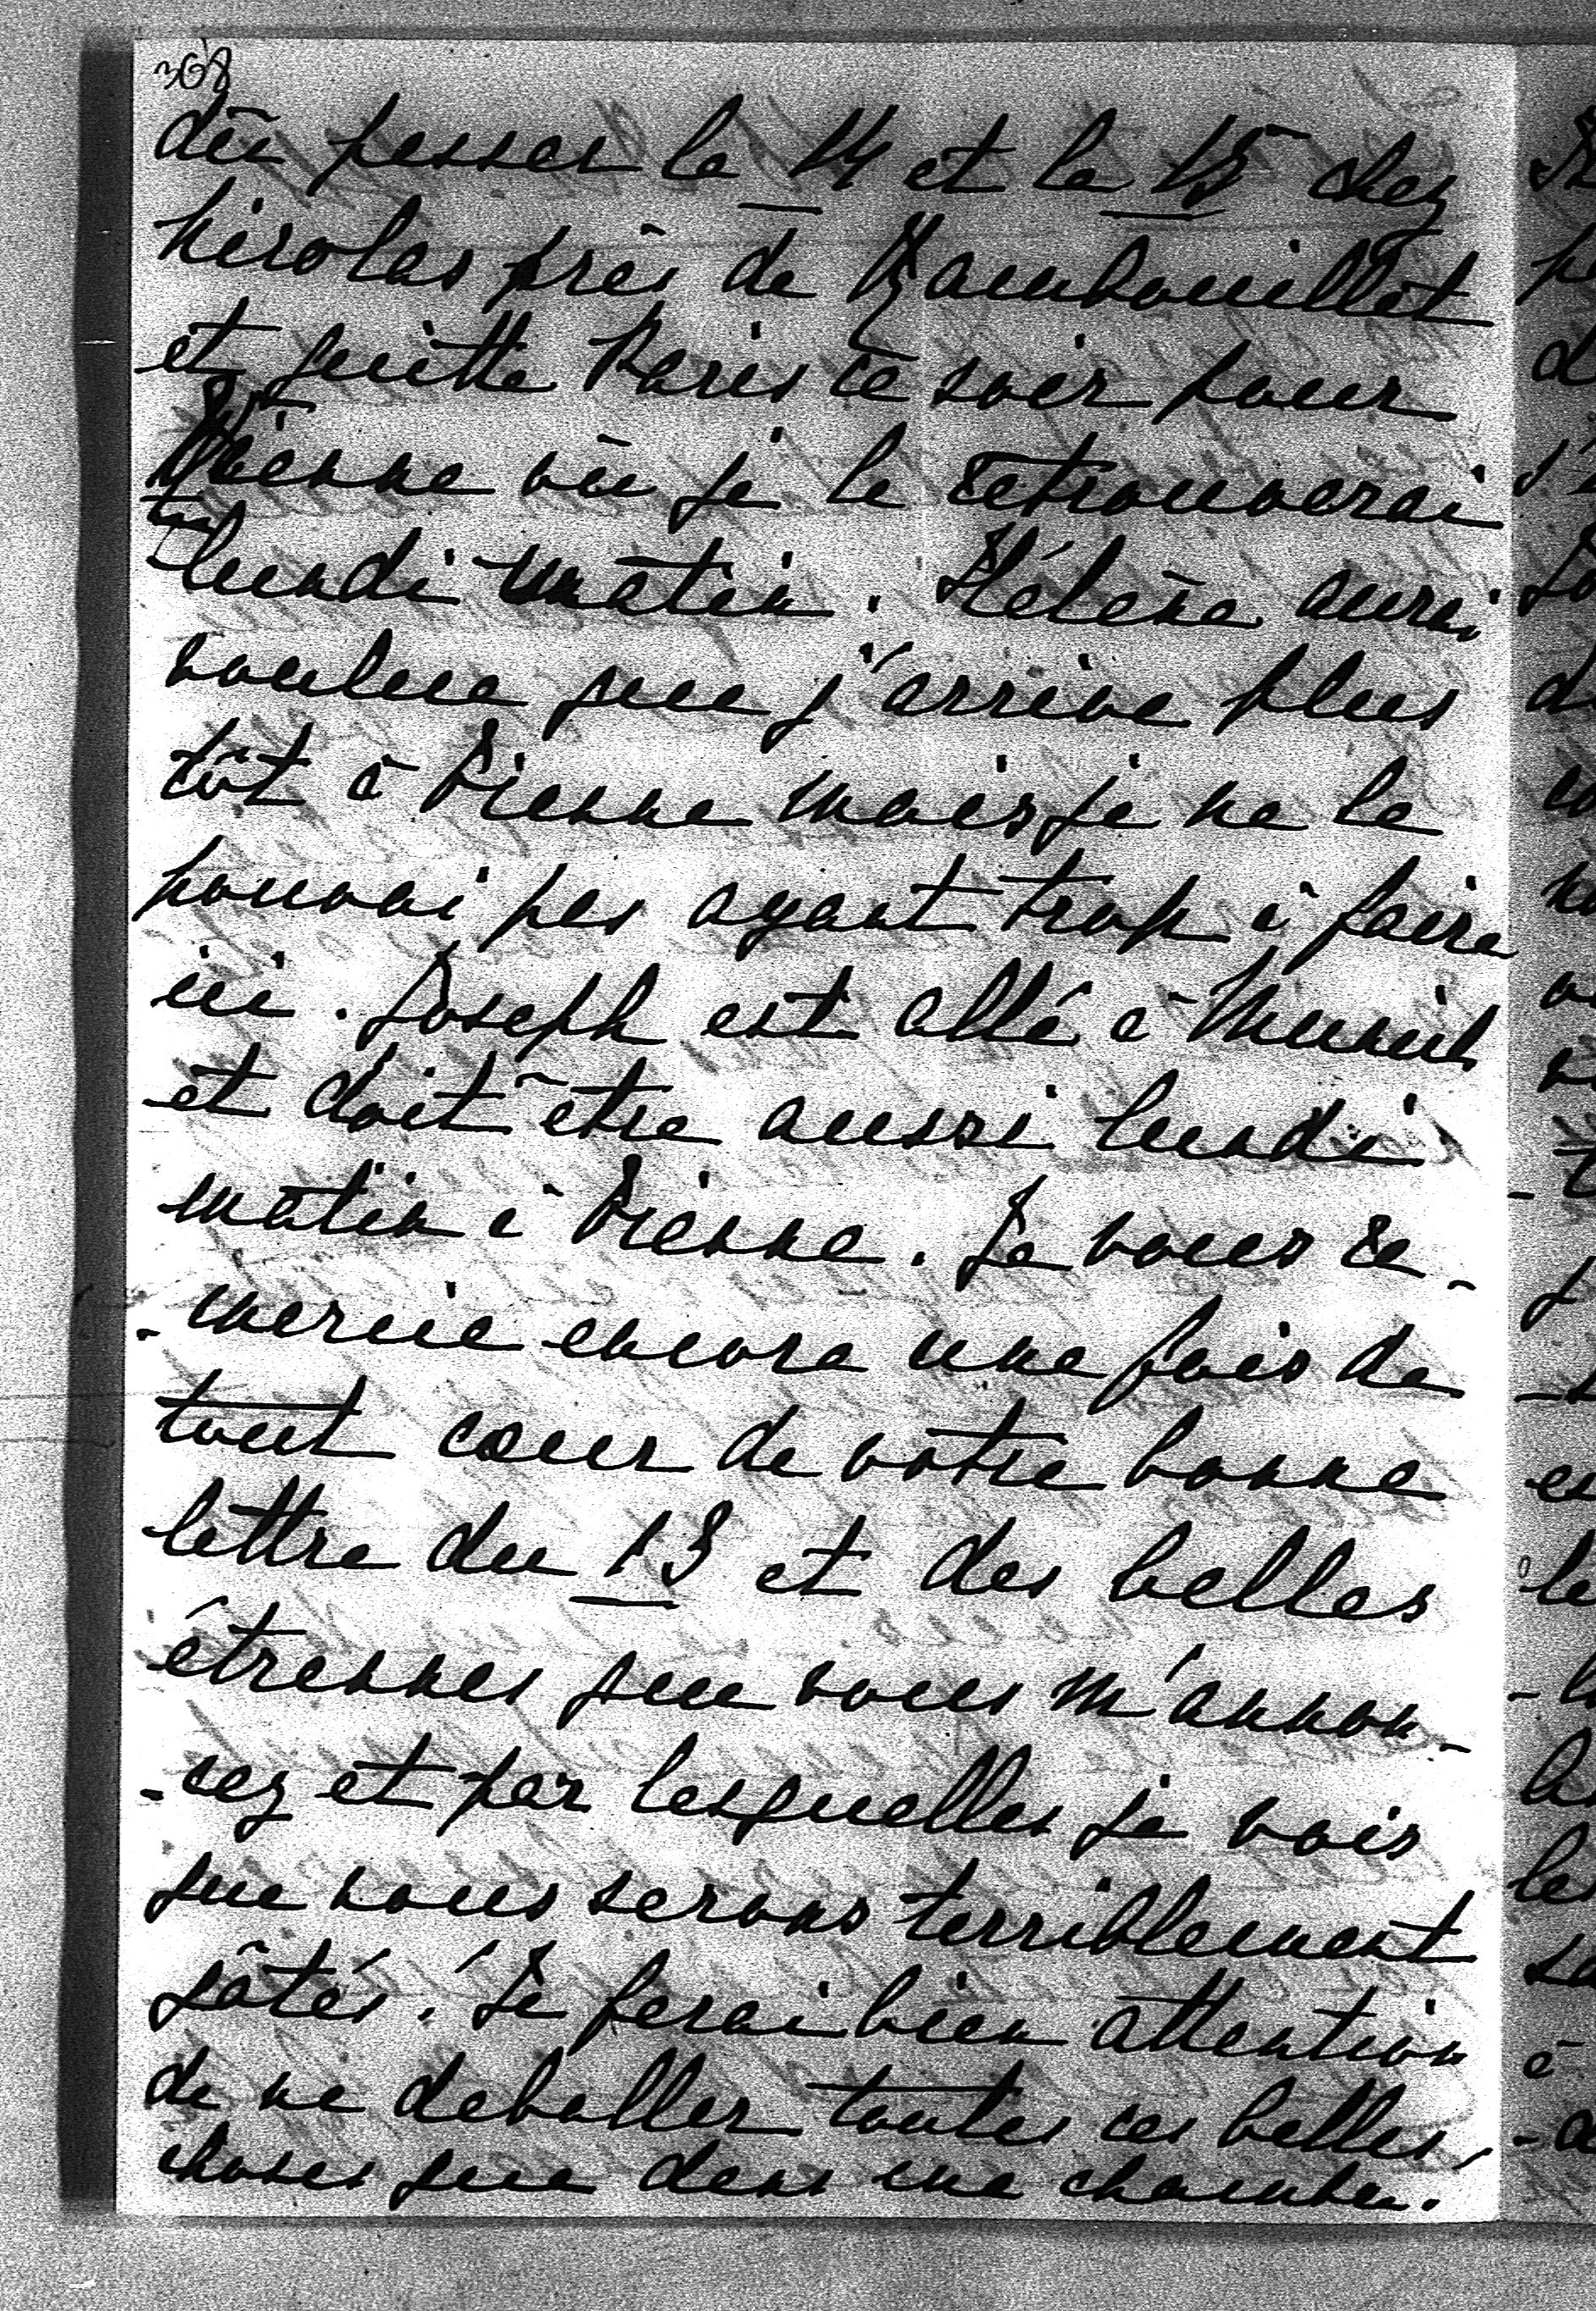 368
dû passer le 14 et le 15 chez
Nicolas près de Rambouillet
et quitte Paris ce soir pour
Vienne où je le retrouverai
lundi matin. Hélène aurai
voulue que j'arrive plus
tôt à Vienne mais je ne le
pouvai pas ayant trop à faire
ici. Joseph est allé à Munich
et doit être aussi lundi
matin à Vienne. Je vous re-
-mercie encore une fois de
tout coeur de votre bonne
lettre du 13 et des belles
étrennes que vous m'annon-
-cez et par lesquelles je vois
que nous serons terriblement
gâtés. Je ferai bien attention
de ne deballer toutes ces belles
choses que dans une chambre.